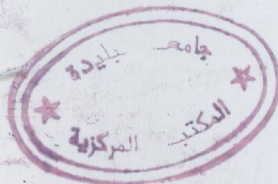 جامعـ بليدة
المكتبـ المركزية